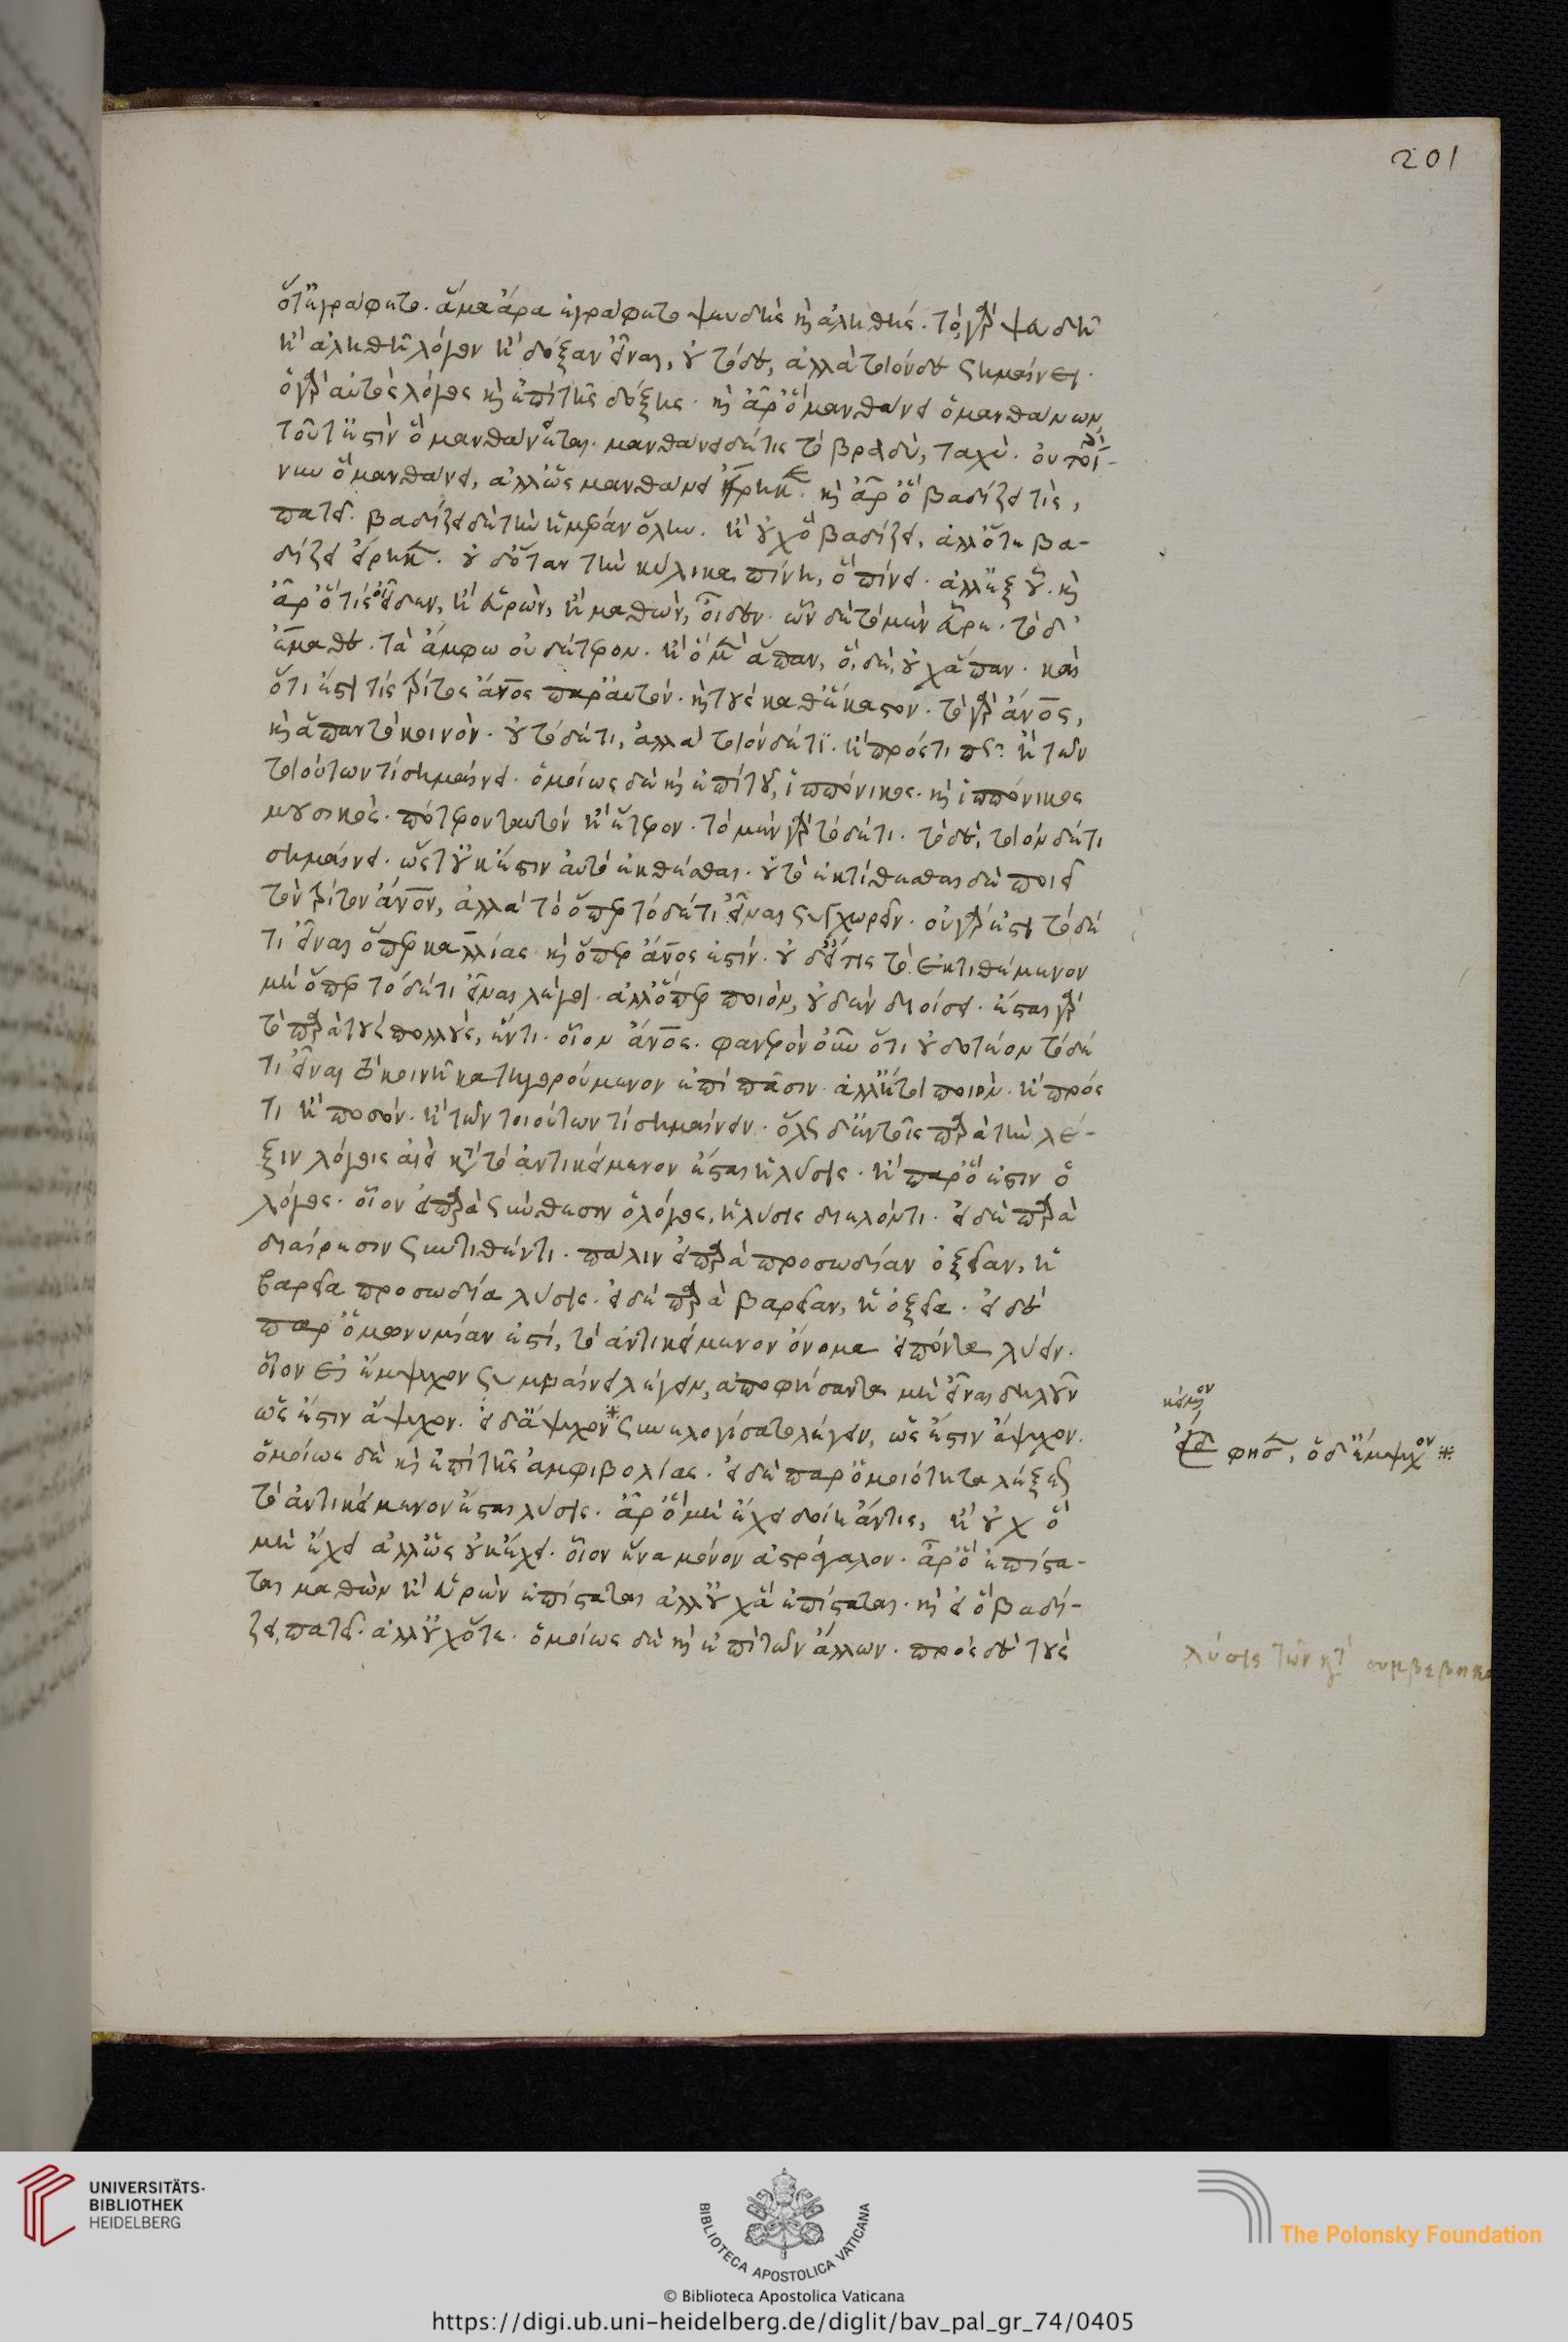 201
ὅτ' ἐγράφετο. ἅμα ἄρα ἐγράφετο ψευδὴς καὶ ἀληθής. τὸ γὰρ ψευδῆ
ἢ ἀληθῆ λόγον ἢ δόξαν εἶναι, οὐ τόδε, ἀλλὰ τοιόνδε σημαίνει.
ὁ γὰρ αὐτὸς λόγος καὶ ἐπὶ τῆς δόξης. καὶ ἆρ' ὃ μανθάνει ὁ μανθάνων,
τοῦτ' ἐστὶν ὃ μανθάνει; μανθάνει δέ τις τὸ βραδὺ, ταχύ. οὐ τοί-
νυν ὃ μανθάνει, ἀλλ' ὡς μανθάνει εἴρηκε. καὶ ἆρ' ὃ βαδίζει τὶς,
πατεῖ. βαδίζει δὲ τὴν ἡμέραν ὅλην. ἢ οὐχ ὃ βαδίζει, ἀλλ' ὅτε βα-
δίζει εἴρηκεν. οὐδ' ὅταν τὴν κύλικα πίνειν, ὃ πίνει. ἀλλ' ἐξ οὗ. καὶ
ἆρ' ὅ τις οἶδεν, ἢ εὑρὼν, ἢ μαθὼν, οἶδεν. ὧν δὲ τὸ μὲν εὗρε. τὸ δ'
ἔμαθε. τὰ ἄμφω οὐδέτερον. ἢ ὃ μὲν ἅπαν, ἃ δὲ, οὐχ ἅπαν. καὶ
ὅτι ἔστι τίς τρίτος ἄνος παρ' αὐτὸν. καὶ τοὺς καθ' ἕκαστον. τὸ γὰρ ἄνος,
καὶ ἅπαν τὸ κοινὸν. οὐ τόδε τι, ἀλλὰ τοιόνδε τι. ἢ πρός τι πως ἢ τῶν
τοιούτων τί σημαίνει. ὁμοίως δὲ καὶ ἐπὶ τοῦ, ἱππόνικος. καὶ ἱππόνικος
μουσικὸς. πότερον ταυτὸν ἢ ἕτερον. τὸ μὲν γὰρ τόδε τι. τὸ δὲ, τοιόνδε τι
σημαίνει. ὥστ' οὐκ ἔστιν αὐτὸ ἐκθέσθαι. οὐ τὸ ἐκτίθεσθαι δὲ ποιεῖ
τὸν τρίτον ἄνον, ἀλλὰ τὸ ὅπερ τόδε τι εἶναι συγχωρεῖν. οὐ γὰρ ἔσται τόδε
τι εἶναι ὅπερ καλλίας καὶ ὅπερ ἄνος ἐστίν. οὐδ' εἴ τις τὸ ἐκτιθέμενον
μὴ ὅπερ τόδε τι εἶναι λέγοι. ἀλλ' ὅπερ ποιὸν, οὐδὲν διοίσει. ἔσται γὰρ
τὸ παρὰ τοὺς πολλοὺς, ἕν τι. οἷον ἄνος. φανερὸν οὖν ὅτι οὐ δοτέον τόδε
τι εἶναι τὸ κοινῇ κατηγορούμενον ἐπὶ πᾶσιν. ἀλλ' ἤτοι ποιὸν. ἢ πρός
τι ἢ ποσόν. ἢ τῶν τοιούτων τί σημαίνειν. ὅλως δ' ἐν τοῖς παρὰ τὴν λέ-
ξιν λόγοις ἀεὶ κατὰ τὸ ἀντικείμενον ἔσται ἡ λύσις. ἢ παρ' ὅ ἐστιν ὁ
λόγος. οἷον εἰ παρὰ σύνθεσιν ὁ λόγος, ἡ λύσις διελόντι. εἰ δὲ παρὰ
διαίρεσιν συντιθέντι. πάλιν εἰ παρὰ προσωδίαν ὀξεῖαν, ἡ
βαρεῖα προσωδία λύσις. εἰ δὲ παρὰ βαρεῖαν, ἡ ὀξεῖα. εἰ δὲ
παρ' ὁμωνυμίαν ἐστὶ, τὸ ἀντικείμενον ὄνομα εἰπόντα λύειν.
οἷον εἰ ἔμψυχον συμβαίνει λέγειν, ἀποφήσαντα μὴ εἶναι δηλοῦν
ὡς ἔστιν ἄψυχον. εἰ δ' ἄψυχον* συνελογίσατο λέγειν, ὡς ἔστιν ἄψυχον.
ὁμοίως δὲ καὶ ἐπὶ τῆς ἀμφιβολίας. εἰ δὲ παρ' ὁμοιότητα λέξεως
τὸ ἀντικείμενον ἔσται λύσις. ἆρ' ὃ μὴ ἔχει δοίη ἄν τις, ἢ οὐχ ὃ
μὴ ἔχει ἀλλ' ὡς οὐκ ἔχει. οἷον ἕνα μόνον ἀστράγαλον. ἆρ' ὃ ἐπίστα-
ται μαθὼν ἢ εὑρὼν ἐπίσταται ἀλλ' οὐχ ἃ ἐπίσταται. καὶ εἰ ὃ βαδί-
ζει, πατεῖ. ἀλλ' οὐχ ὅτε. ὁμοίως δὲ καὶ ἐπὶ τῶν ἄλλων. πρὸς δὲ τοὺς
φησ, ὁ δ' ἔμψυχον *
λύσις τῶν κατὰ συμβεβηκο
UNIVERSITÄTS-
BIBLIOTHEK
HEIDELBERG
BIBLIOTECA APOSTOLICA VATICANA
The Polonsky Foundation
© Biblioteca Apostolica Vaticana
https://digi.ub.uni-heidelberg.de/diglit/bav_pal_gr_74/0405